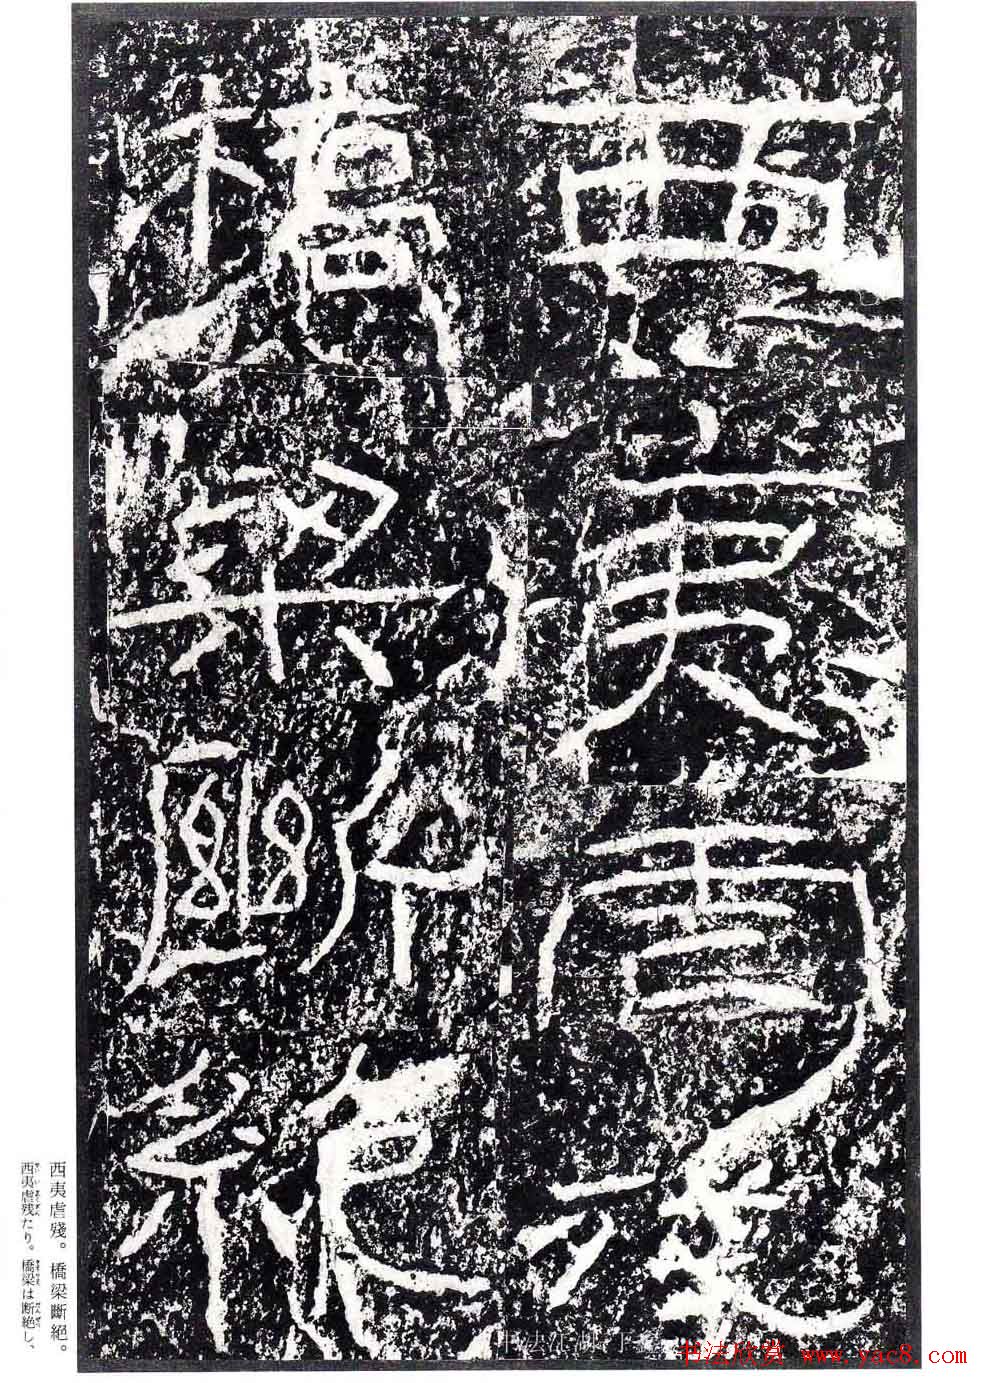 西夷虐殘
橋梁斷絶
西夷虐殘。橋梁斷絕。
西夷虐残たり。橋梁は断絶し、
书法欣赏 www.yac8.com